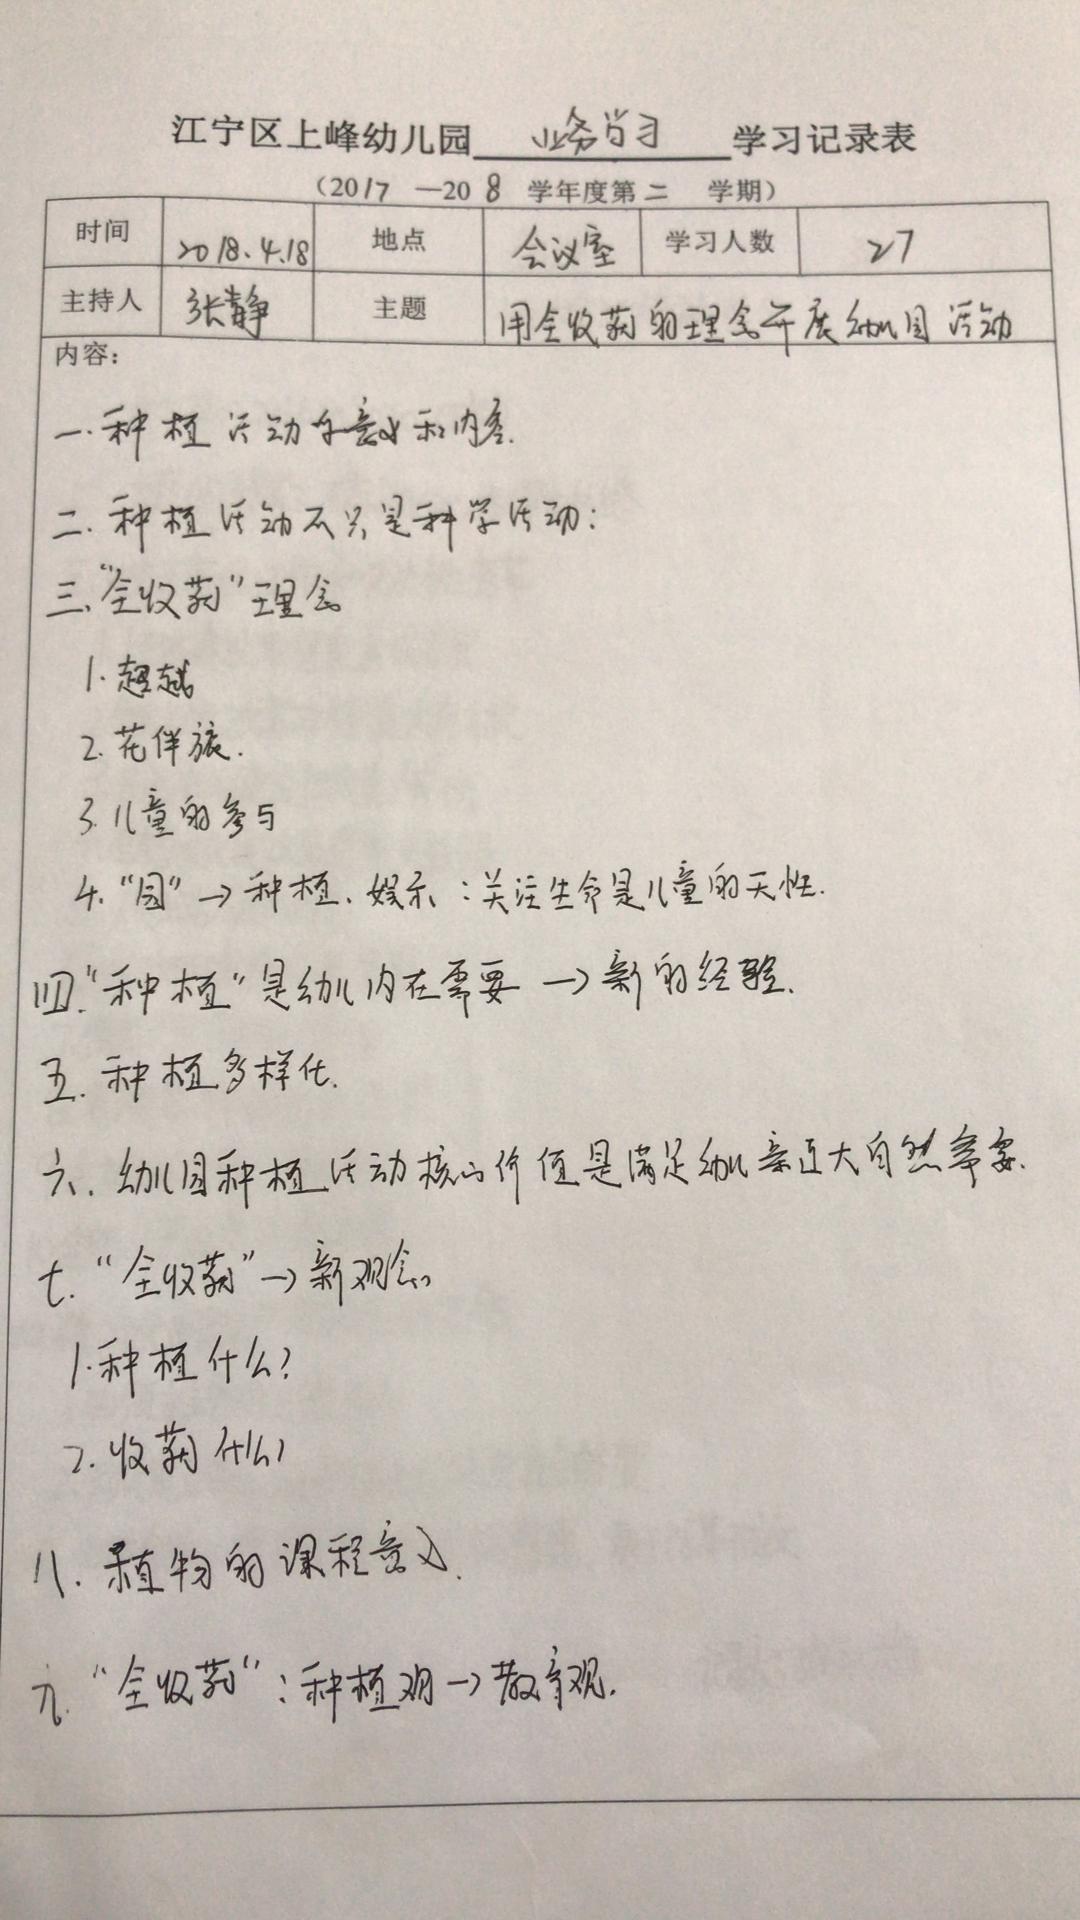 江宁区上峰幼儿园 业务学习 学习记录表
（2017 —208 学年度第二 学期）
时间 2018.4.18 地点 会议室 学习人数 27
主持人 张静 主题 用全收获的理念开展幼儿园活动
内容：
一.种植活动的意义和内容.
二.种植活动不只是科学活动：
三、“全收获”理念
1.超越
2.花伴旅.
3.儿童的参与
4.“园”→种植、娱乐：关注生命是儿童的天性.
四.“种植”是幼儿内在需要→新的经验.
五.种植多样化.
六.幼儿园种植活动核心价值是满足幼儿亲近大自然需要.
七.“全收获”→新观念
1.种植什么？
2.收获什么？
八.植物的课程意义.
九.“全收获”：种植观→教育观.